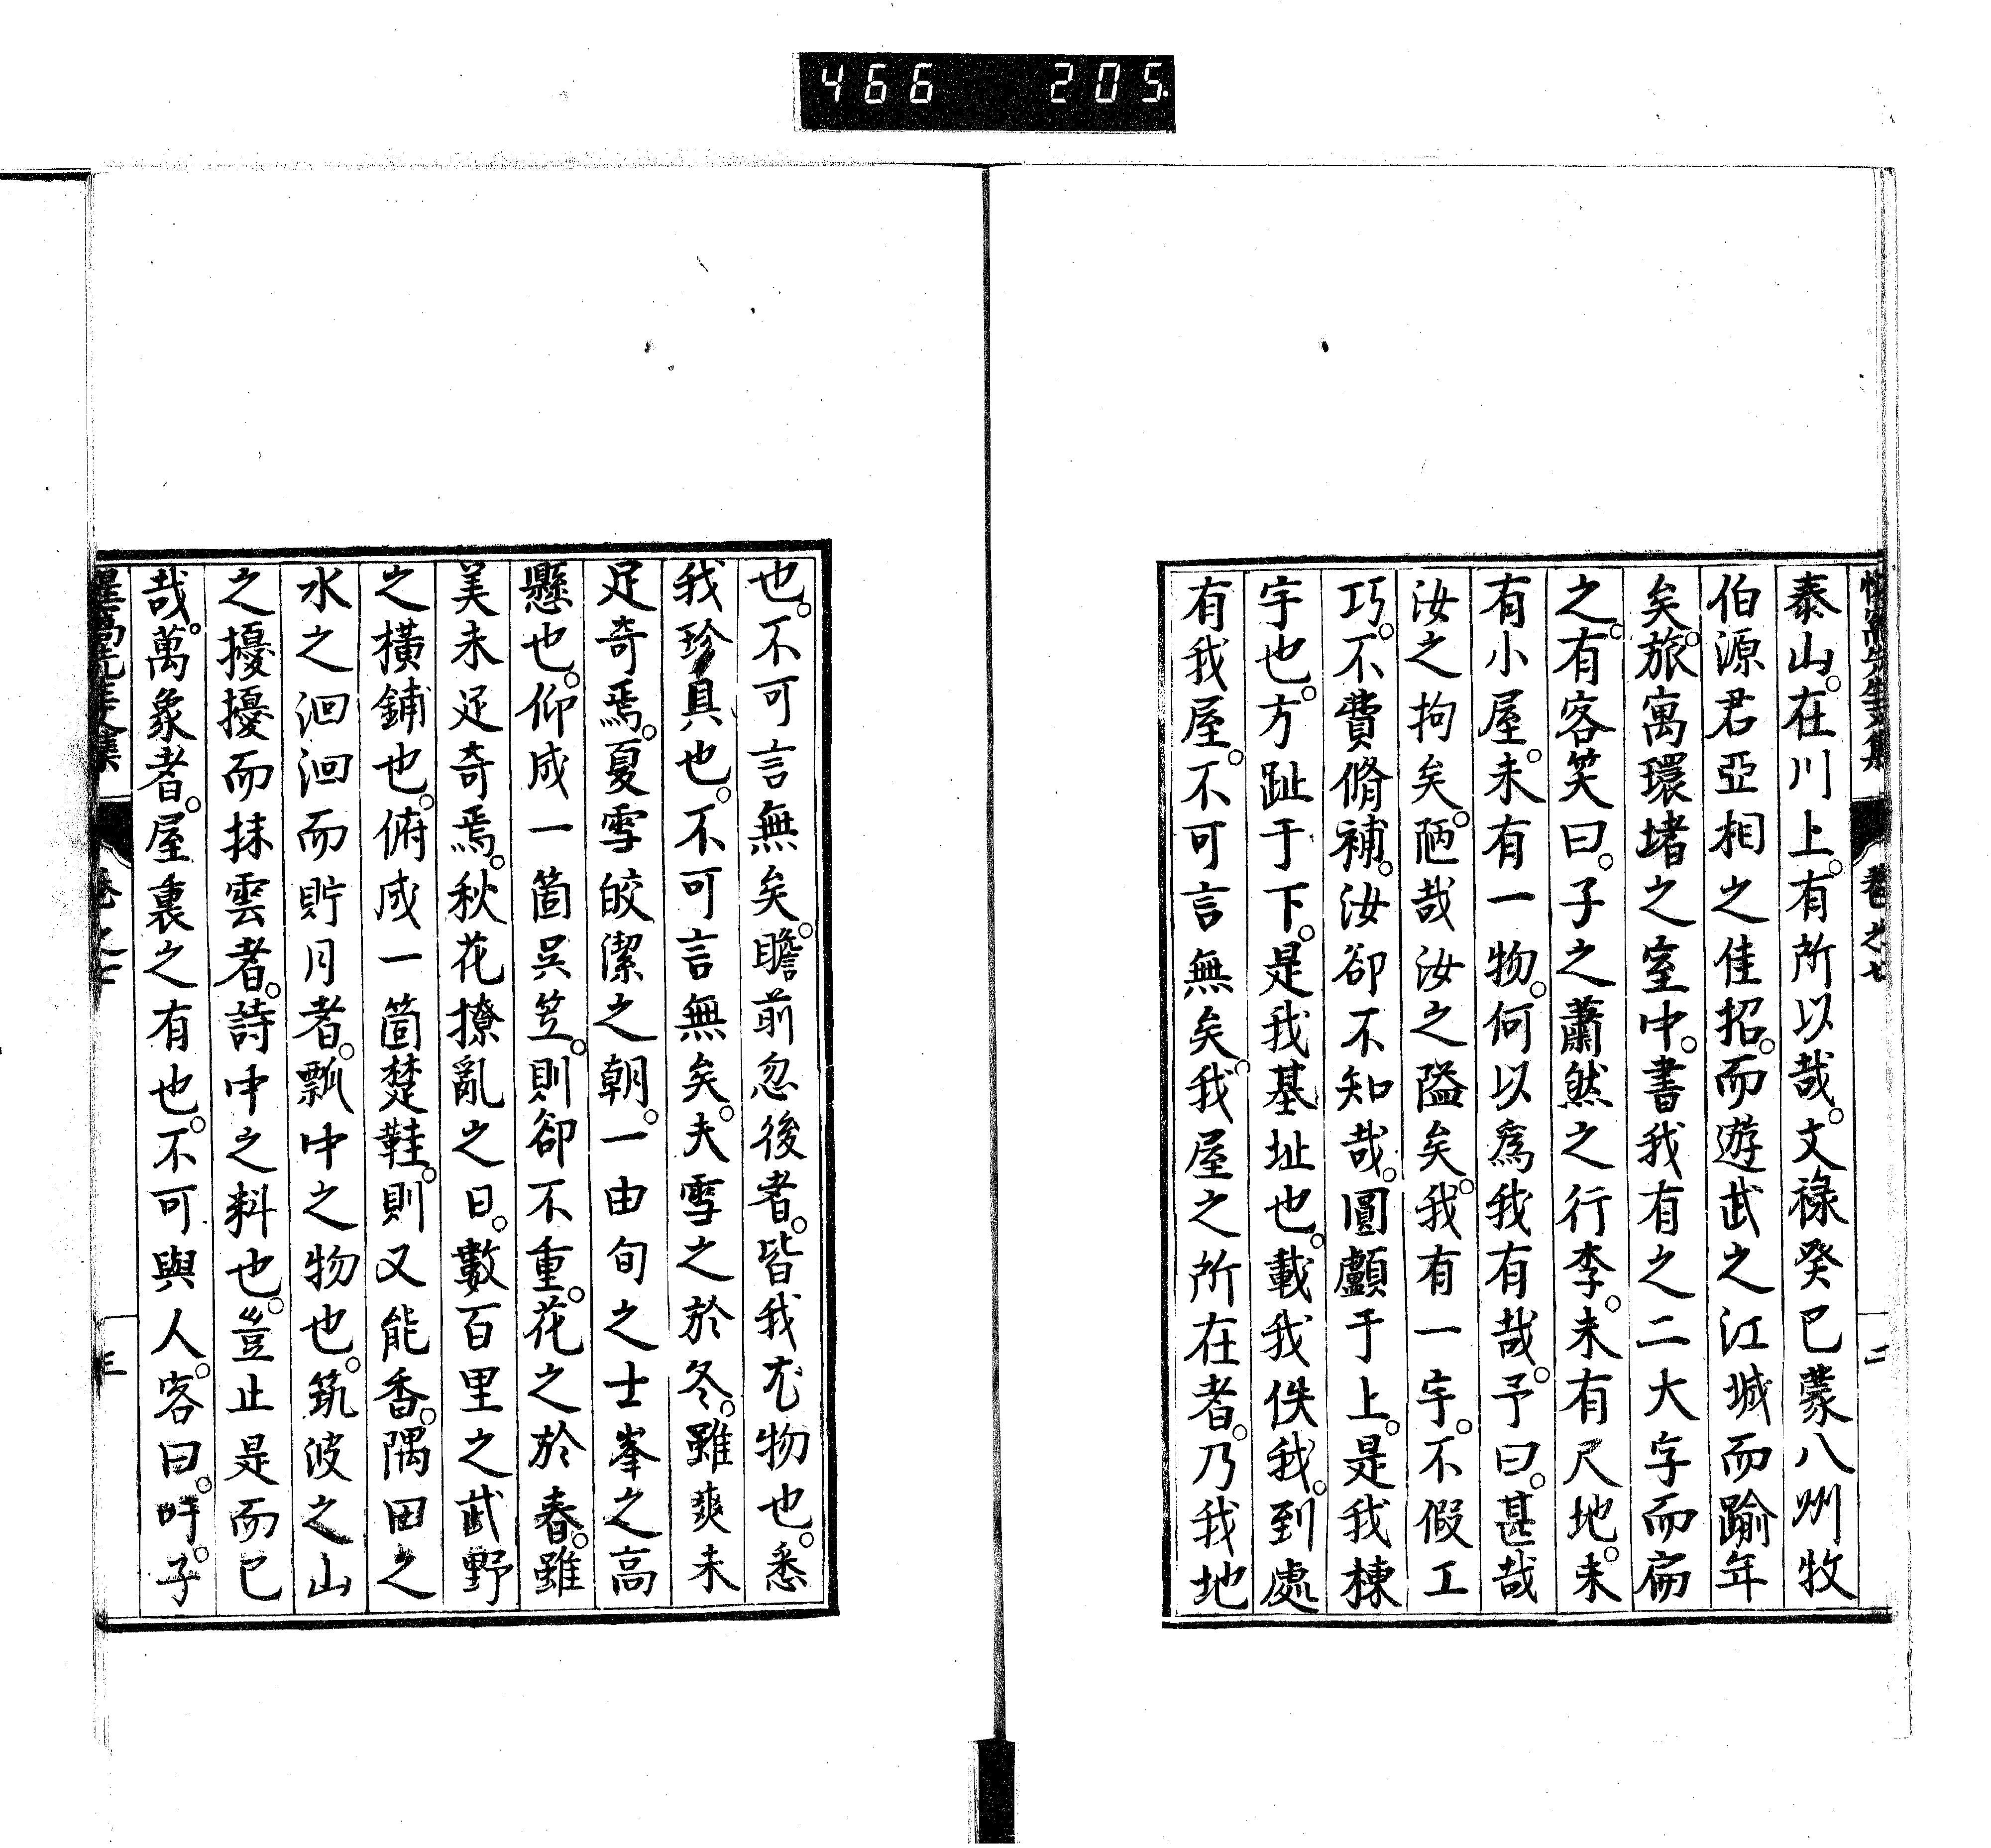 466 205.
惺窩先生文集 卷之七 二
泰山。在川上。有所以哉。文祿癸巳蒙八州牧
伯源君亞相之佳招。而遊武之江城而踰年
矣。旅寓環堵之室中。書我有之二大字而扁
之。有客笑曰。子之蕭然之行李。未有尺地。未
有小屋。未有一物。何以爲我有哉。予曰。甚哉
汝之拘矣。陋哉汝之隘矣。我有一宇。不假工
巧。不費脩補。汝卻不知哉。圓顱于上。是我棟
宇也。方趾于下。是我基址也。載我佚我。到處
有我屋。不可言無矣。我屋之所在者。乃我地
也。不可言無矣。瞻前忽後者。皆我尤物也。悉
我珍具也。不可言無矣。夫雪之於冬。雖爽未
足奇焉。夏雪皎潔之朝。一由旬之士峯之高
懸也。仰成一箇吳笠。則卻不重。花之於春。雖
美未足奇焉。秋花撩亂之日。數百里之武野
之橫鋪也。俯成一箇楚鞋。則又能香。隅田之
水之洄洄而貯月者。瓢中之物也。筑波之山
之擾擾而抹雲者。詩中之料也。豈止是而已
哉。萬象者。屋裏之有也。不可與人。客曰。吁。子
惺窩先生文集 卷之七 三